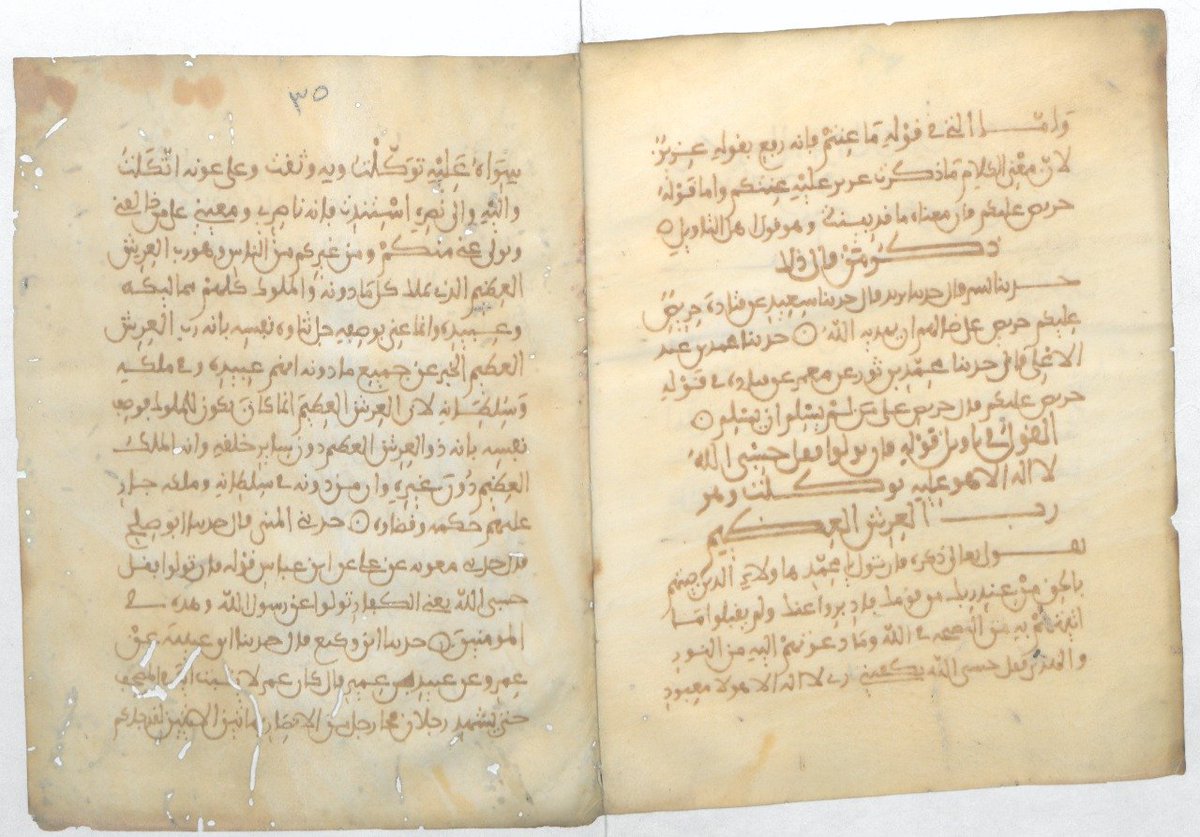 وامـــا التي في قوله ما عنتم فانه رفع بقوله عزيز
لان معنى الكلام ما ذكرت عزيز عليه عنتكم واما قوله
حريص عليكم فان معناه ما قد بينت وهو قول اهل التاويل
ذكـــر من قال ذلك
حـــدثنا بشر قال حدثنا يزيد قال حدثنا سعيد عن قتادة حريص
عليكم حريص على ضالهم ان يهديه الله حدثنا محمد بن عبد
الاعلى قال حدثنا محمد بن ثور عن معمر عن قتادة في قوله
حريص عليكم قال حريص على من لم يسلم ان يسلم
القول في تاويل قوله فان تولوا فقل حسبي الله
لا اله الا هو عليه توكـــلت وهو
رب العرش العظيم
يقـــول تعالى ذكره فان تولى يا محمد هاولاء الذين جئتهم
بالحق من عند ربك من قومك فادبروا عنك ولم يقبلوا ما
اتيتهم به من النصيحة في الله وما دعوتهم اليه من النور
والهدى فقل حسبي الله يكفيني ربي لا اله الا هو لا معبود
٣٥
سواه عليه توكلت وبه وثقت وعلى عونه اتكلت
واليه والى نصره استندت فانه ناصري ومعيني على من خالفني
وتولى عني منكم ومن غيركم من الناس وهو رب العرش
العظيم الذي يملك كل ما دونه والملوك كلهم مماليكه
وعبيده وانما عنى بوصفه جل ثناوه نفسه بانه رب العرش
العظيم الخبر عن جميع ما دونه انهم عبيده وفي ملكه
وسلطانه لان العرش العظيم انما كان يكون للملوك فوصف
نفسه بانه ذو العرش العظيم دون ساير خلقه وانه الملك
العظيم دون غيره وان من دونه في سلطانه وملكه جار
عليهم حكمه وقضاوه حدثني المثنى قال حدثنا ابو صالح
قال حدثني معوية عن علي عن ابن عباس قوله فان تولوا فقل
حسبي الله يعني الكفار تولوا عن رسول الله وهذه في
المومنين حدثنا ابن وكيع قال حدثنا ابن عيينة عن
عمرو عن عبيد بن عمير قال كان عمر لا يثبت اية في المصحف
حتى يشهد رجلان فجا رجل من الانصار بهاتين الايتين لقد جاكم